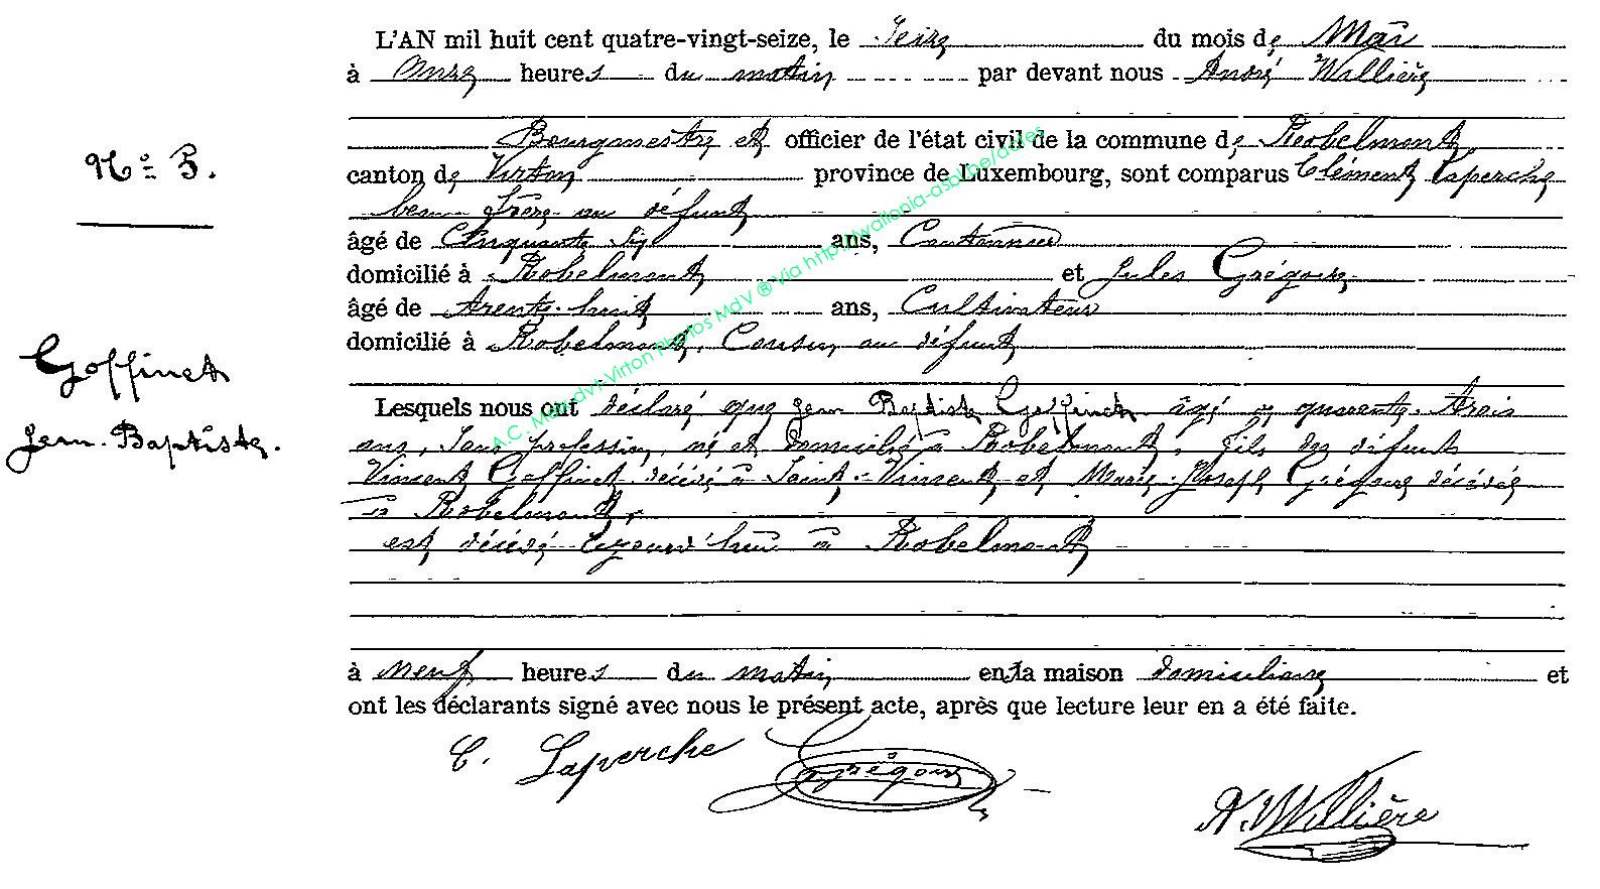 L'AN mil huit cent quatre-vingt-seize, le Seize du mois de Mai
à Onze heures du matin par devant nous André Willière
Bourgmestre et officier de l'état civil de la commune de Robelmont
canton de Virton province de Luxembourg, sont comparus Clément Laperche
beau frère au défunt
âgé de Cinquante Six ans, Cantonnier
domicilié à Robelmont et Jules Grégoire
âgé de trente-huit ans, Cultivateur
domicilié à Robelmont, Cousin au défunt
Lesquels nous ont déclaré que Jean Baptiste Goffinet âgé de quarante-trois
ans, Sans profession, né et domicilié à Robelmont, fils des défunts
Vincent Goffinet décédé à Saint-Vincent et Marie-Joseph Grégoire décédée
à Robelmont,
est décédé aujourd'hui à Robelmont
à neuf heures du matin en la maison domiciliaire et
ont les déclarants signé avec nous le présent acte, après que lecture leur en a été faite.
C. Laperche Grégoire
A. Willière
No 5.
Goffinet
Jean-Baptiste.
A.C. Meix-dvt-Virton Photos MdV ® Via http://wallonia-asbl.be/deces